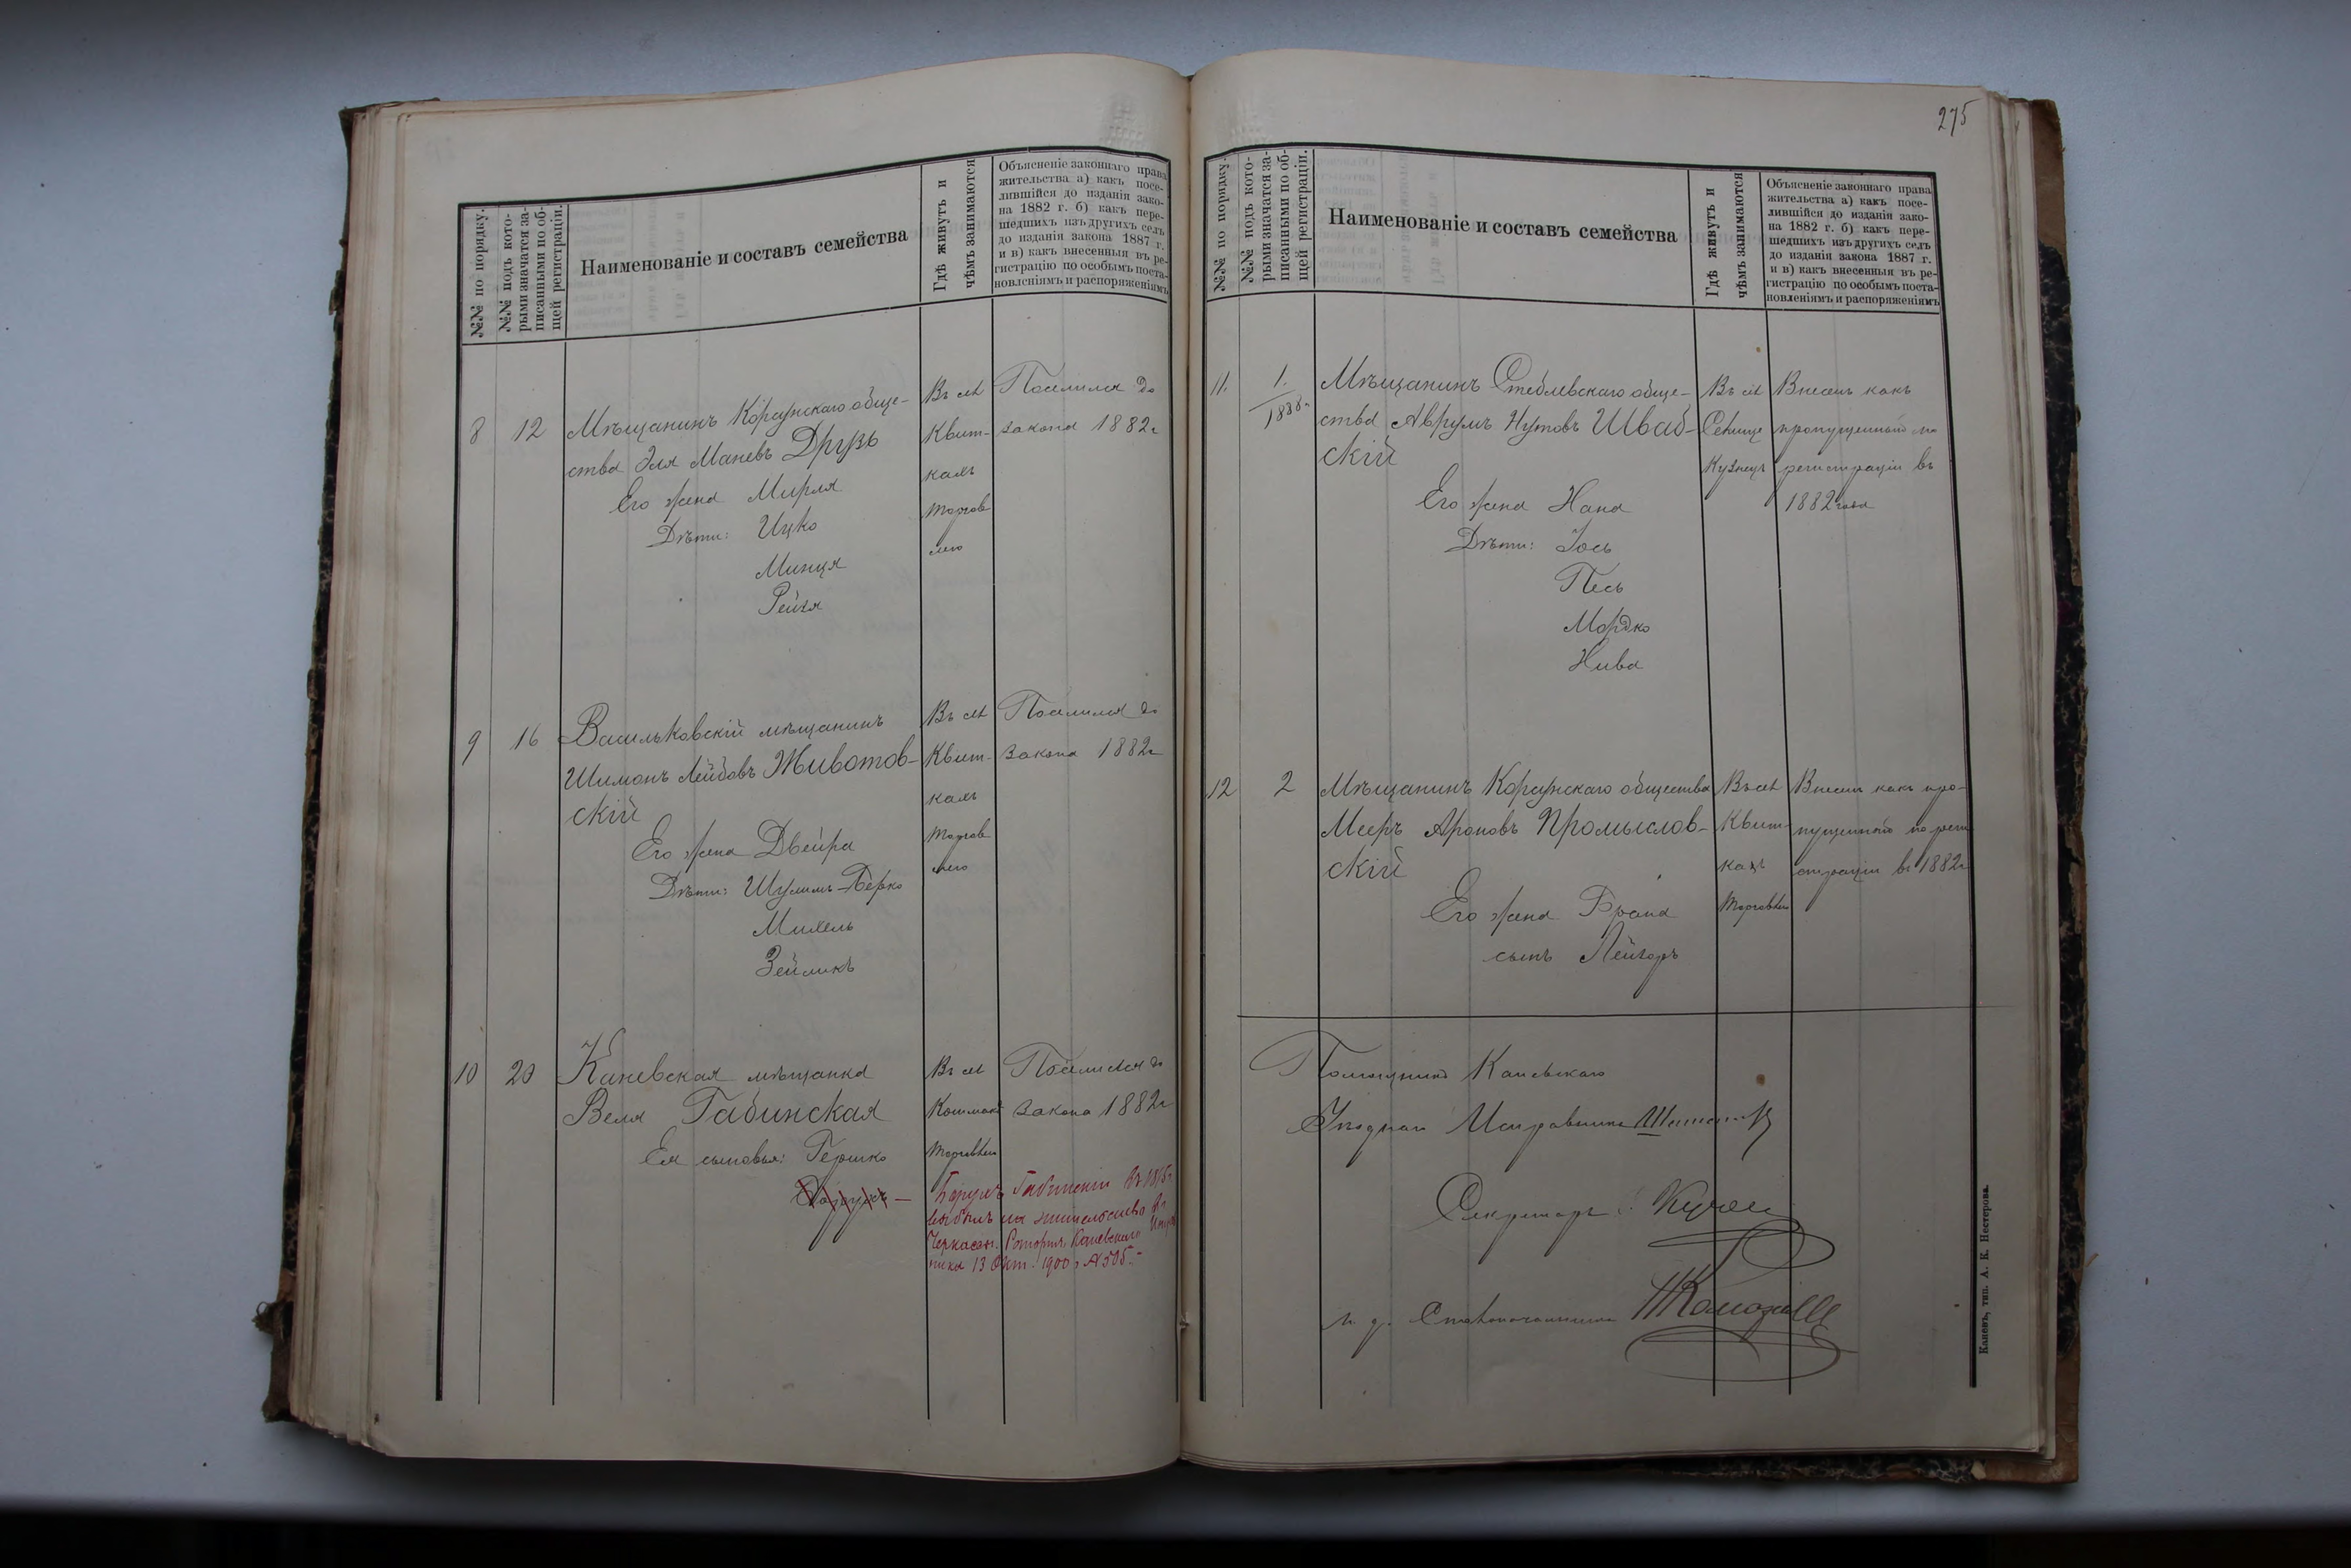 №№ по порядку.
№№ подъ кото-
рыми значатся за-
писанными по об-
щей регистраціи.
Наименованіе и составъ семейства
Гдѣ живутъ и
чѣмъ занимаются
Объясненіе законнаго права
жительства а) какъ посе-
лившійся до изданія зако-
на 1882 г. б) какъ пере-
шедшихъ изъ другихъ селъ
до изданія закона 1887 г.
и в) какъ внесенныя въ ре-
гистрацію по особымъ поста-
новленіямъ и распоряженіямъ
8
12
Мѣщанинъ Корсунскаго обще-
ства Эля Маневъ Друзь
Его жена Мирля
Дѣти: Ицко
Минця
Рейзя
Въ м
Квит-
кахъ
торгов
лею
Поселился до
закона 1882г
9
16
Васильковскій мѣщанинъ
Шимонъ Лейбовъ Животов-
скій
Его жена Двейра
Дѣти: Шулимъ-Берко
Михель
Зейликъ
Въ м
Квит-
кахъ
торгов
лею
Поселился до
закона 1882г
10
20
Каневская мѣщанка
Веля Габинская
Ея сыновья: Гершко
Борухъ —
Въ м
торговлею
Поселился до
закона 1882г
Борухъ Габинскій
выбылъ на жительство
13 Окт. 1900 г №505.-
275
№№ по порядку.
№№ подъ кото-
рыми значатся за-
писанными по об-
щей регистраціи.
Наименованіе и составъ семейства
Гдѣ живутъ и
чѣмъ занимаются
Объясненіе законнаго права
жительства а) какъ посе-
лившійся до изданія зако-
на 1882 г. б) какъ пере-
шедшихъ изъ другихъ селъ
до изданія закона 1887 г.
и в) какъ внесенныя въ ре-
гистрацію по особымъ поста-
новленіямъ и распоряженіямъ
11.
1.
1888г
Мѣщанинъ Стеблевскаго обще-
ства Аврумъ Нутовъ Шваб-
скій
Его жена Хана
Дѣти: Іось
Песь
Мордко
Хива
Въ м
Кузнецъ
Внесенъ какъ
пропущенный по
регистраціи въ
1882 года
12
2
Мѣщанинъ Корсунскаго общества
Мееръ Ароновъ Промыслов-
скій
Его жена Брана
сынъ Лейзоръ
Въ м
Квит-
кахъ
торговлею
Внесенъ какъ про-
пущенный по реги
страціи въ 1882г
Помощникъ Каневскаго
Уѣзднаго Исправника
Секретарь:
и. д. Столоначальника
Каневъ, тип. А. К. Нестерова.